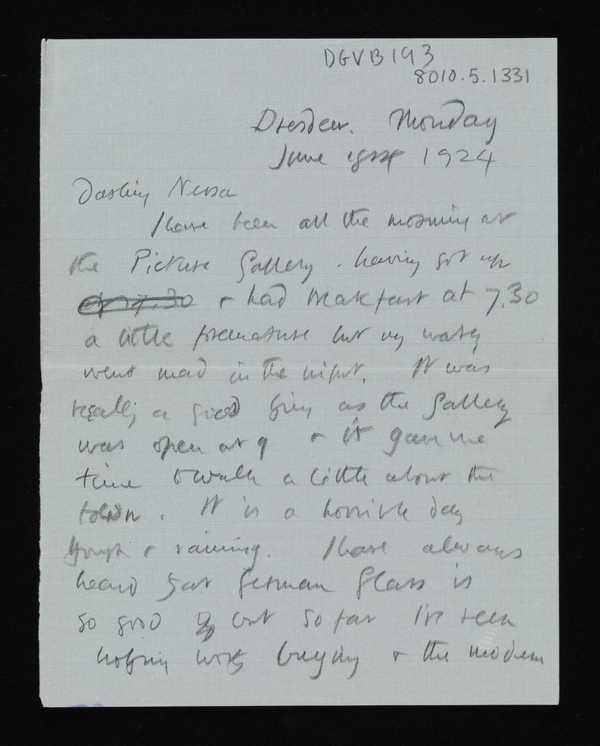 DGVB193
8010.5.1331
Dresden. Monday
June 1924
Darling Nessa
I have been all the morning at
the Picture Gallery. having got up
& had breakfast at 7.30
a little premature but my watch
went mad in the night. It was
really a good thing as the Gallery
was open at 9 & it gave me
time to walk a little about the
town. It is a horrible day
& raining. I have always
heard that German Glass is
so good but so far I've seen
nothing worth buying & the modern